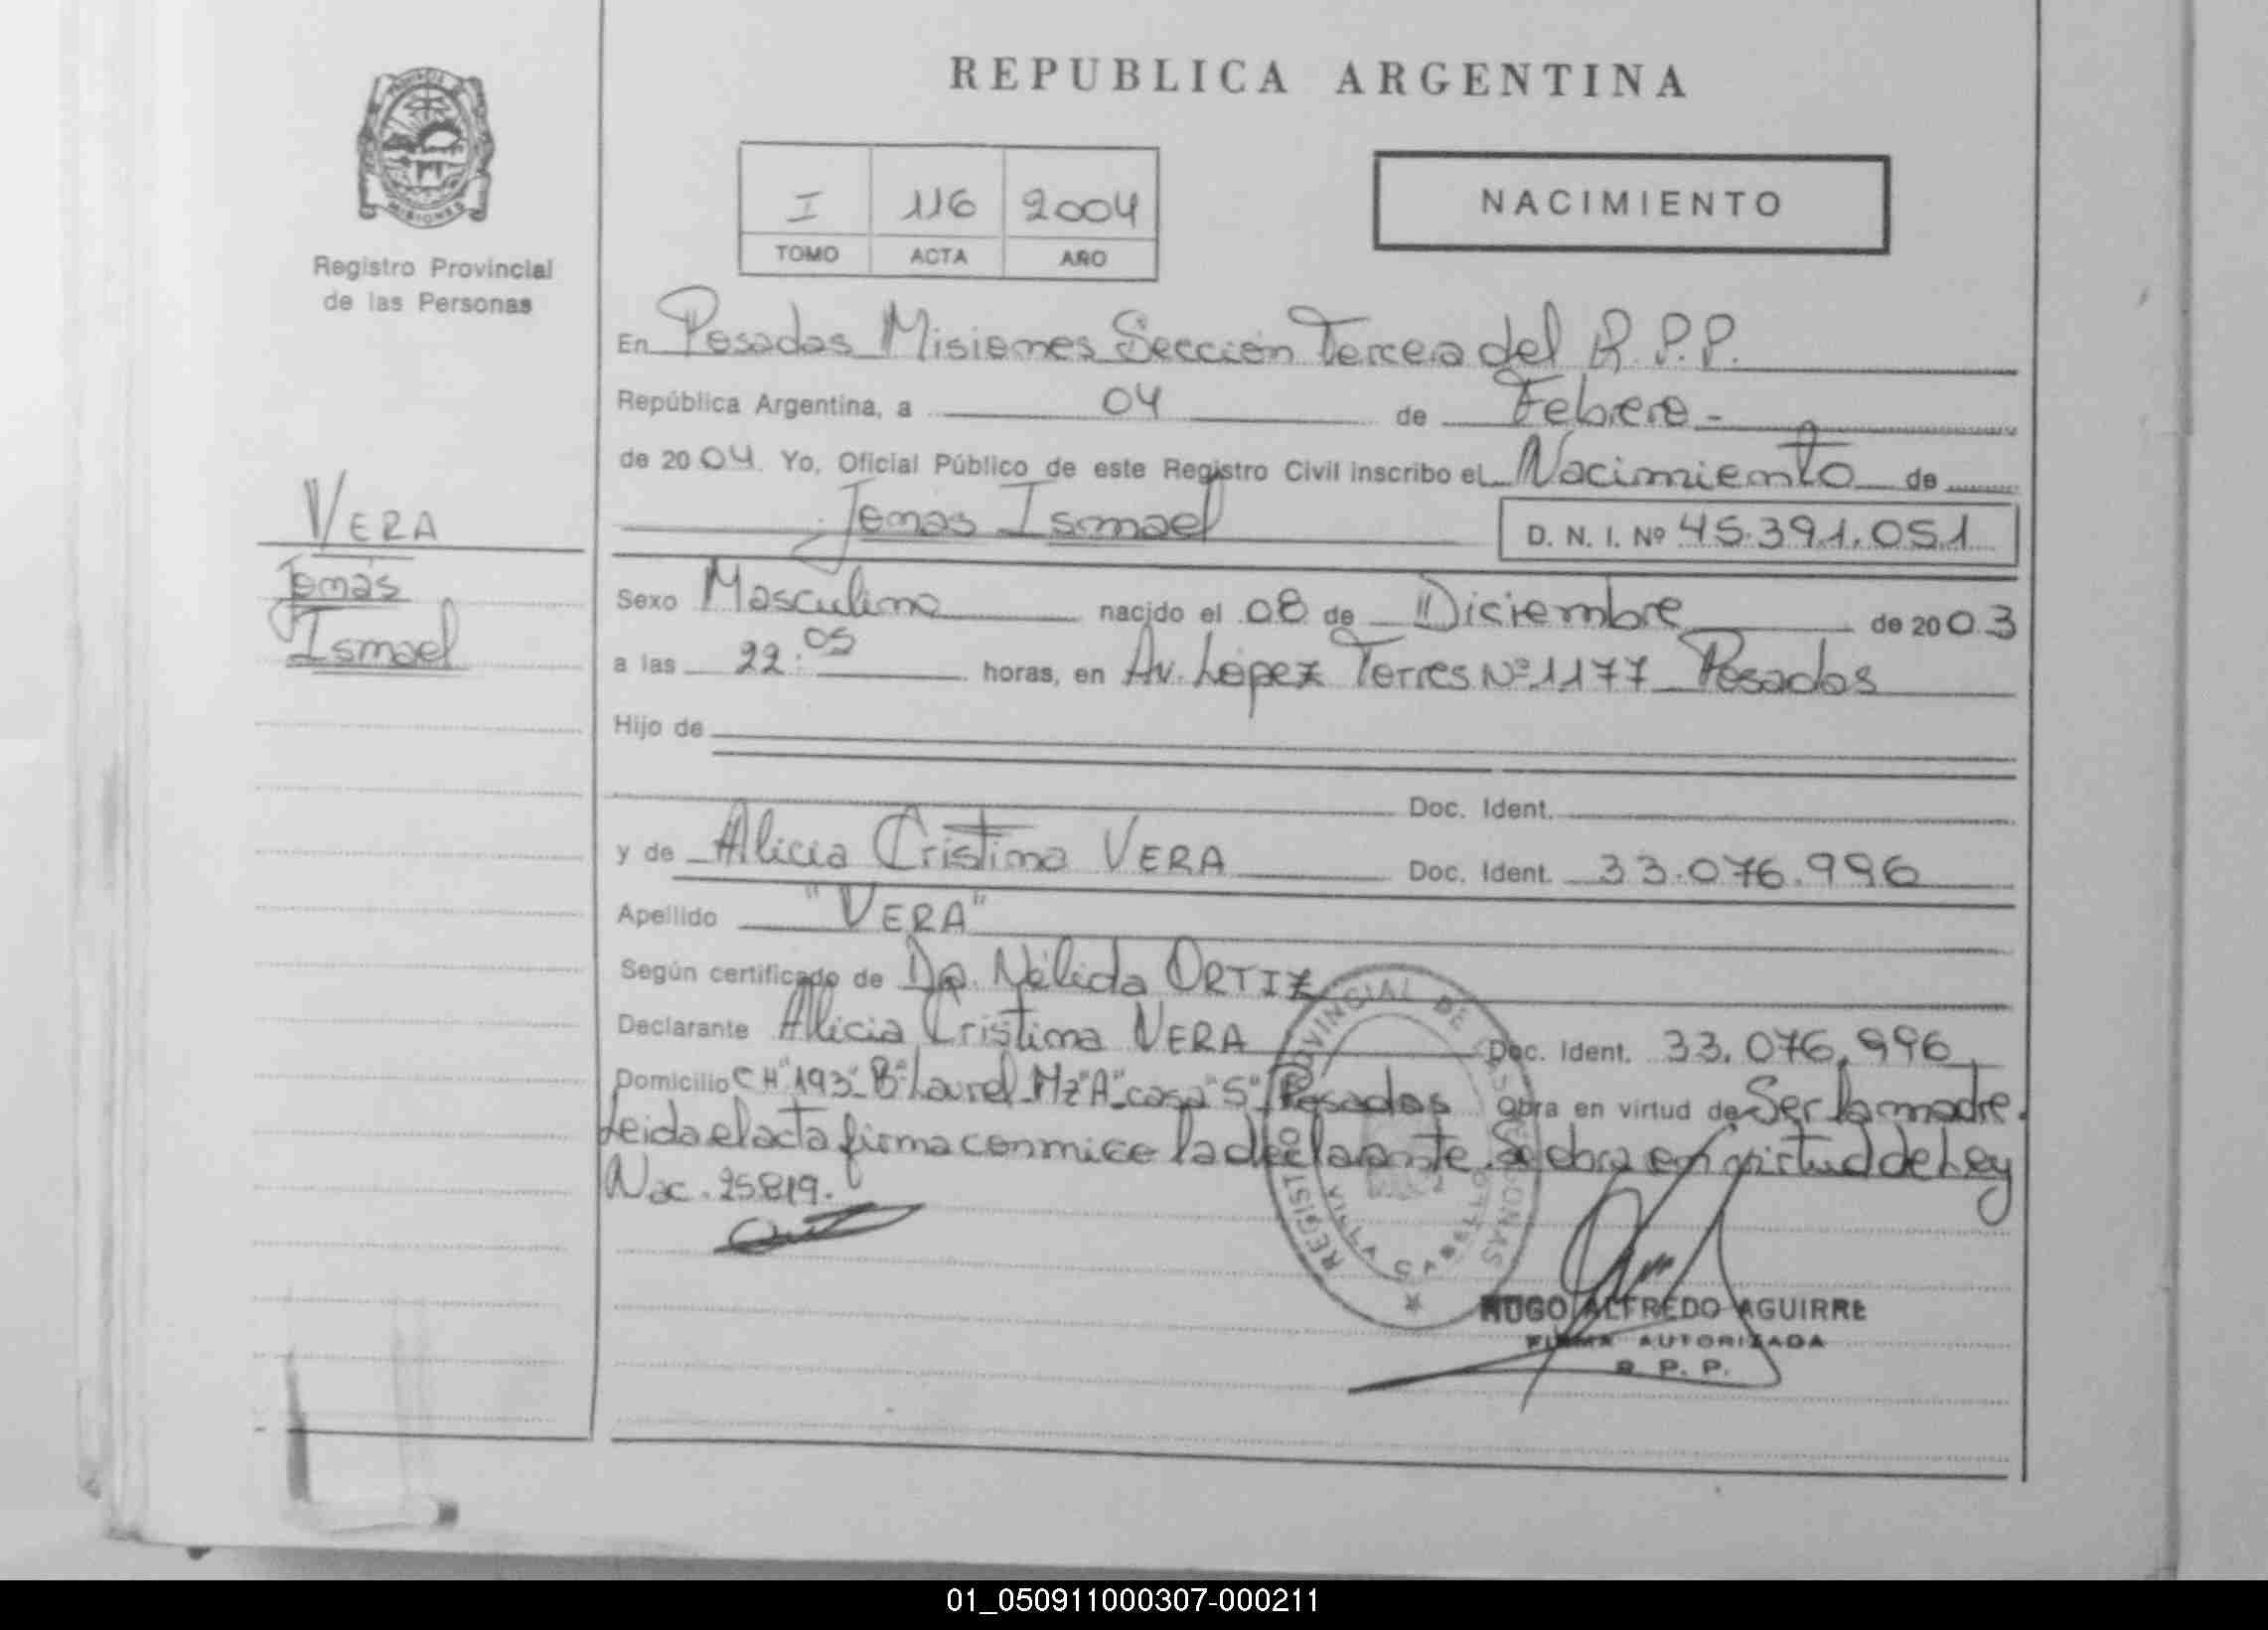 REPUBLICA ARGENTINA
MISIONES
Registro Provincial
de las Personas
I 116 2004
TOMO ACTA AÑO
NACIMIENTO
En Posadas Misiones Sección Tercera del R.P.P.
República Argentina, a 04 de Febrero -
de 2004 Yo, Oficial Público de este Registro Civil inscribo el Nacimiento de
Tomas Ismael D. N. I. Nº 45.391.051
VERA
Tomás
Ismael
Sexo Masculino nacido el 08 de Diciembre de 2003
a las 22:05 horas, en Av. López Torres Nº 1177 Posadas
Hijo de
Doc. Ident.
y de Alicia Cristina VERA Doc. Ident. 33.076.996
Apellido "VERA"
Según certificado de Dra. Nélida ORTIZ
Declarante Alicia Cristina VERA Doc. Ident. 33.076.996
Domicilio CH "193" Bº Laurel Mz "A" casa "5" Posadas obra en virtud de Ser la madre.
Leida el acta firma conmigo la declarante. Se obra en virtud de Ley
Nac. 25.819.
VILLA CABELLO
HUGO ALFREDO AGUIRRE
FIRMA AUTORIZADA
R. P. P.
01_050911000307-000211